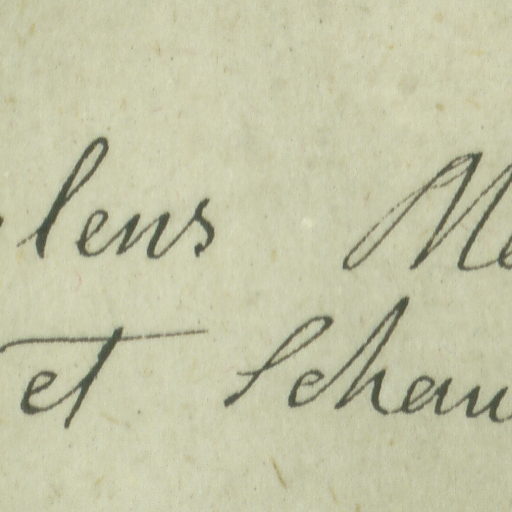 lens Me
et Schau